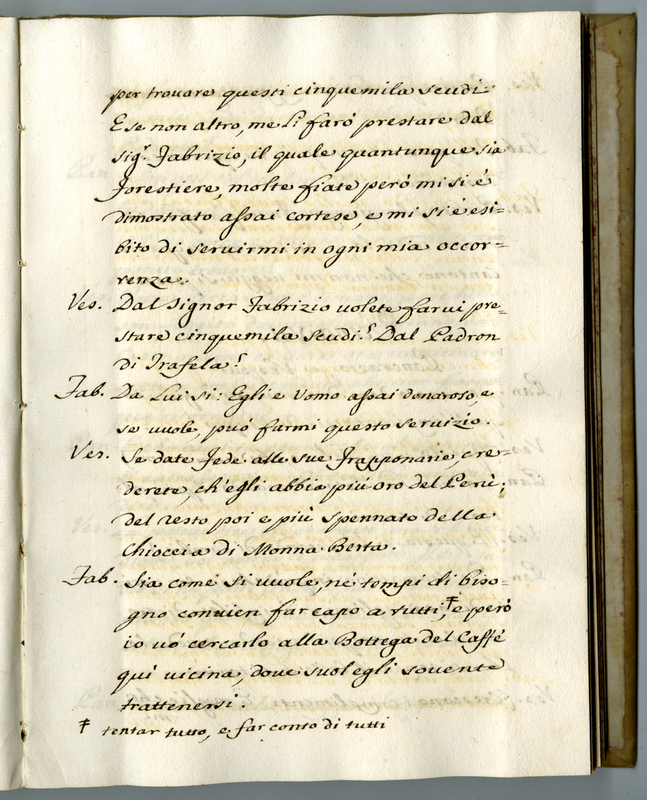 per trovare questi cinquemila scudi.
E se non altro, me li farò prestare dal
Sigr. Fabrizio, il quale quantunque sia
Forestiere, molte fiate però mi si è
dimostrato assai cortese, e mi si è esi=
bito di servirmi in ogni mia occor=
renza.
Ves. Dal Signor Fabrizio volete farvi pre=
stare cinquemila scudi? Dal Padron
di Trafela?
Fab. Da Lui si: Egli e Uomo assai danaroso, e
se vuole, può farmi questo servizio.
Ves. Se date Fede alle sue Frapponarie, cre=
derete, ch'egli abbia più oro del Perù;
del resto poi e più spennato della
Chioccia di Monna Berta.
Fab. Sia come si vuole, nè tempi di biso=
gno convien far capo a tutti,‡ e però
io vò cercarlo alla Bottega del Caffè
quì vicina, dove suol egli sovente
trattenersi.
‡ tentar tutto, e far conto di tutti